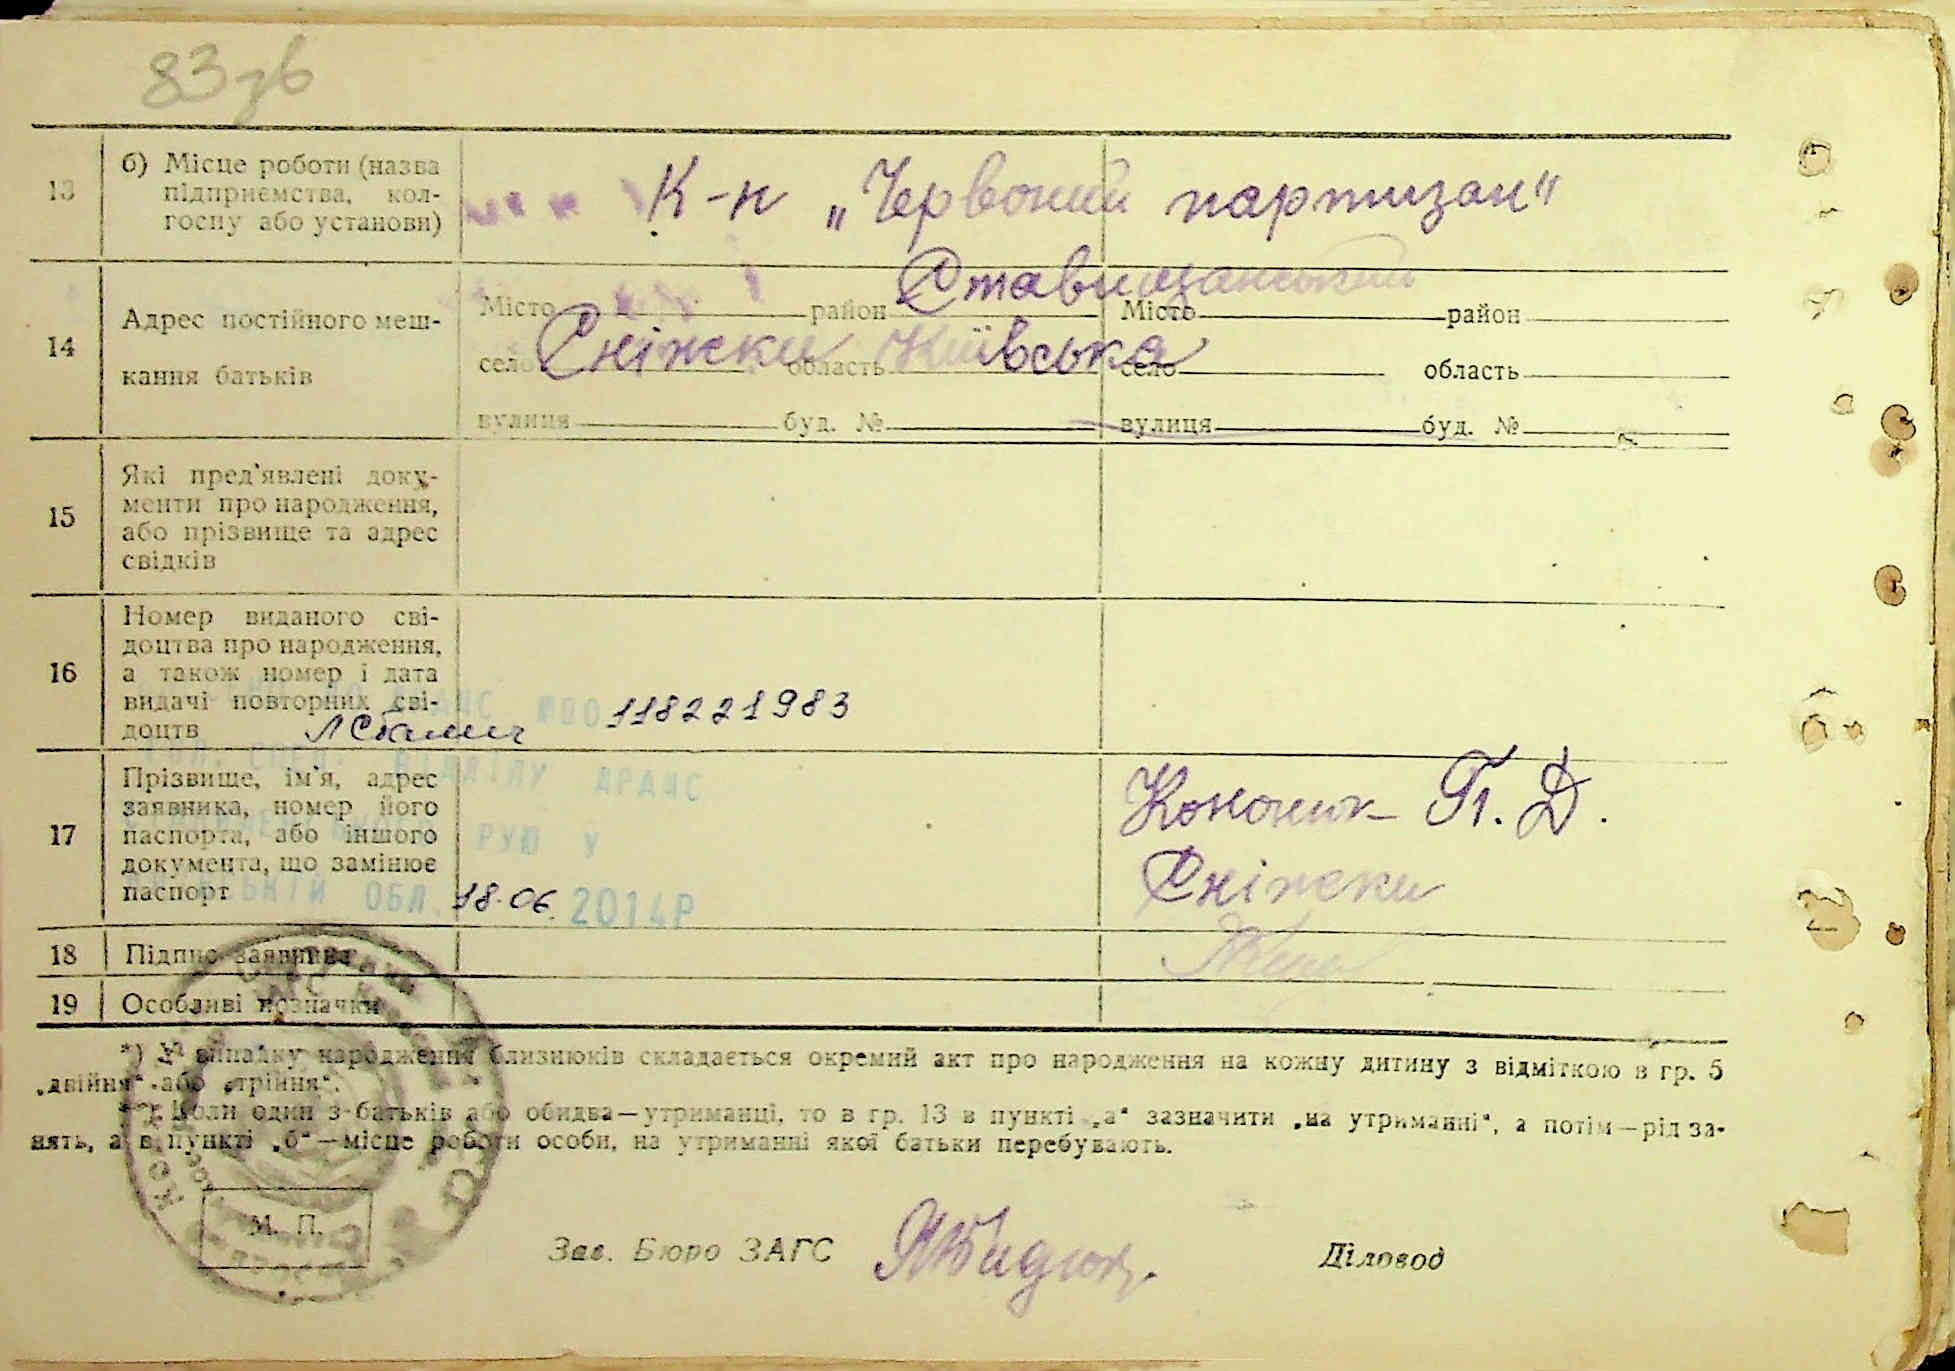 83зв
13
б) Місце роботи (назва
підприємства, кол-
госпу або установи)
К-п „Червоний партизан"
14
Адрес постійного меш-
кання батьків
Місто район Ставищанський Місто район
село Сніжки область Київська село область
вулиця буд. № вулиця буд. №
15
Які пред'явлені доку-
менти про народження,
або прізвище та адрес
свідків
16
Номер виданого сві-
доцтва про народження,
а також номер і дата
видачі повторних сві-
доцтв
118221983
17
Прізвище, ім'я, адрес
заявника, номер його
паспорта, або іншого
документа, що замінює
паспорт
ВІДДІЛУ ДРАЦС
РУЮ У
ОБЛ. 18.06. 2014Р
Кононюк П. Д.
Сніжки
18 Підпис заявника
19 Особливі позначки
*) У випадку народження близнюків складається окремий акт про народження на кожну дитину з відміткою в гр. 5
„двійня" або „трійня".
**) Коли один з батьків або обидва—утриманці, то в гр. 13 в пункті „а" зазначити „на утриманні", а потім—рід за-
нять, а в пункті „б"—місце роботи особи, на утриманні якої батьки перебувають.
М. П.
Зав. Бюро ЗАГС Діловод